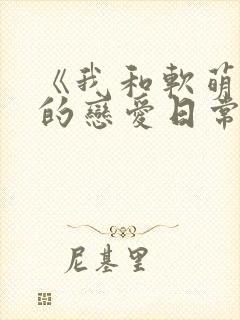 《我和軟萌
的戀愛日常
尼基里